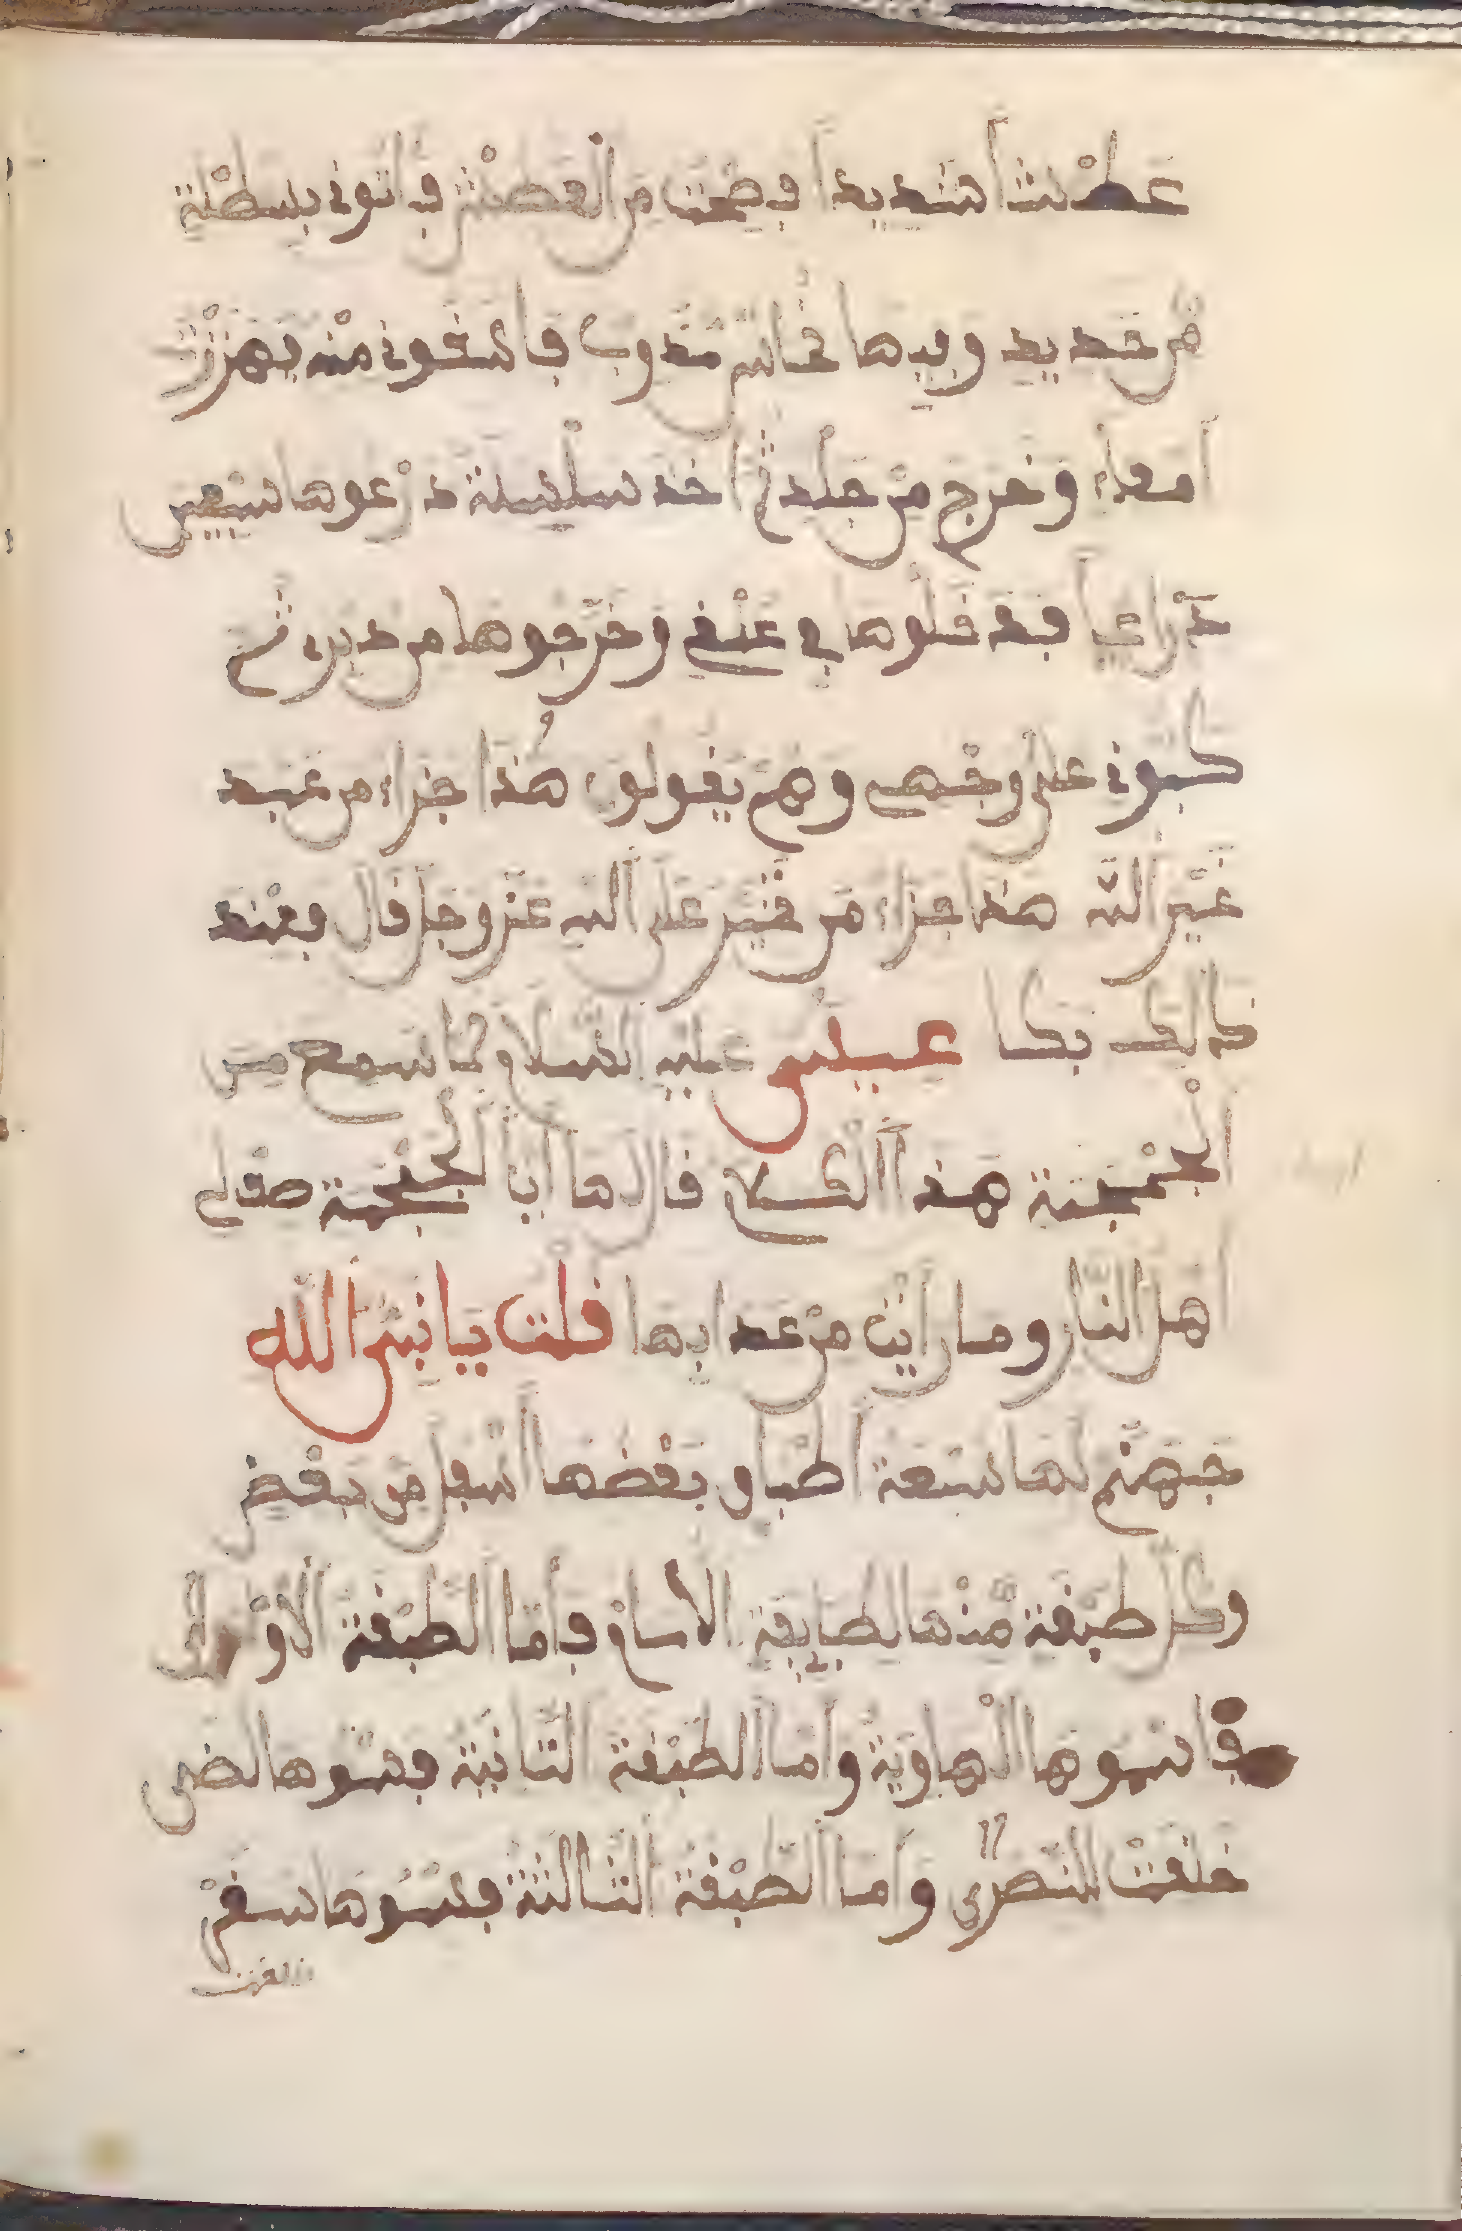 عطشا شديدا فصحت من العطش فأتوني بسطلة
من حديد وفيها نحاس مذوب فاسقوني منه فهرزت
امعاء وخرج من جلد ثم اخذ سلسلة ذرعوها سبعين
ذراعا فدخلوها في عنفي وخرجوها من دبري ثم
كبوني على وجهي وهم يقولون هذا جزاء من عبد
غير الله هذا جزاء من تجبر على الله عز وجل قال فعند
ذالك بكا عيسى عليه السلام لما سمع من
الجمجمة هذا الكلام قال لها أيا الجمجمة صف لي
اهل النار وما رأيت من عذابها قلت يا نبي الله
جهنم لها سبعة اطباق بعضها أسفل من بعض
وكل طبقة منها لطايفة الاسلم فأما الطبقة الأولى
فاسموها الهاوية وأما الطبقة الثانية فسموها لظى
خلقت للنصرى وأما الطبقة الثالثة فسموها سقر
خلقت